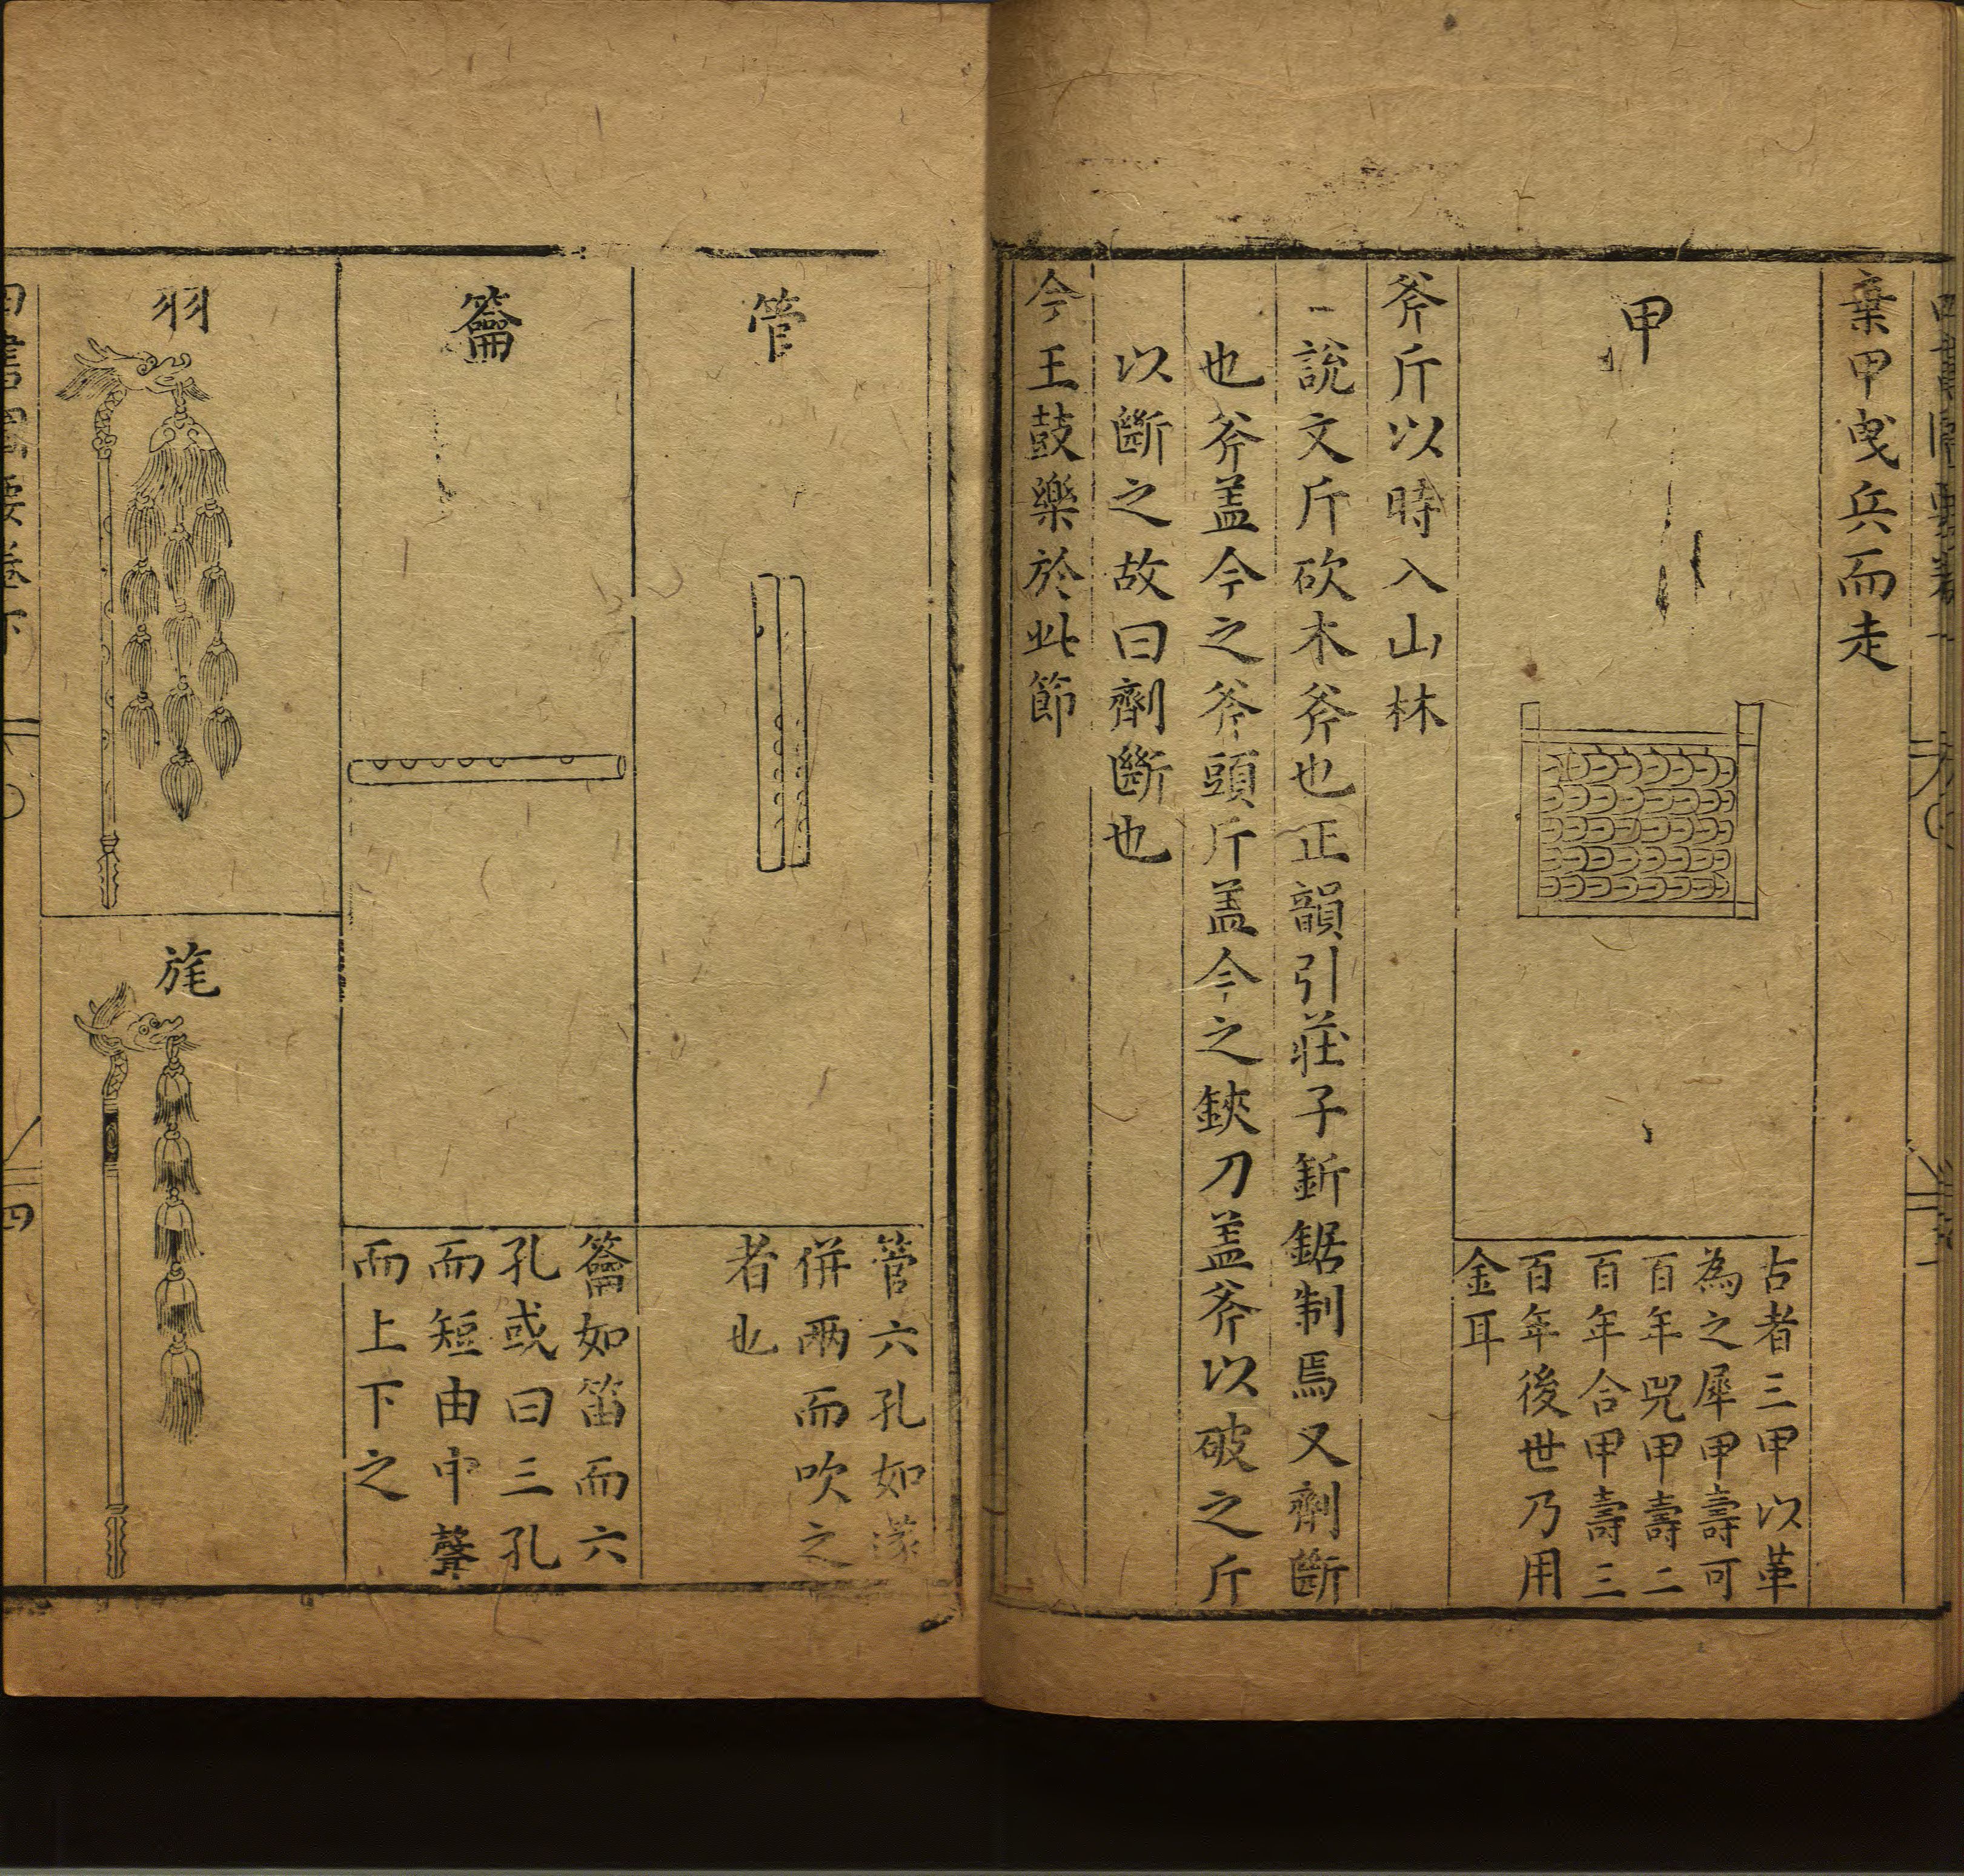 棄甲曳兵而走
甲
古者三甲以革
為之犀甲壽可
百年兕甲壽二
百年合甲壽三
百年後世乃用
金耳
斧斤以時入山林
說文斤砍木斧也正韻引莊子釿鋸制焉又劑斷
也斧盖今之斧頭斤盖今之鋏刀盖斧以破之斤
以斷之故曰劑斷也
今王鼓樂於此節
管
管六孔如篴
併兩而吹之
者也
籥
籥如笛而六
孔或曰三孔
而短由中聲
而上下之
羽
旄
四